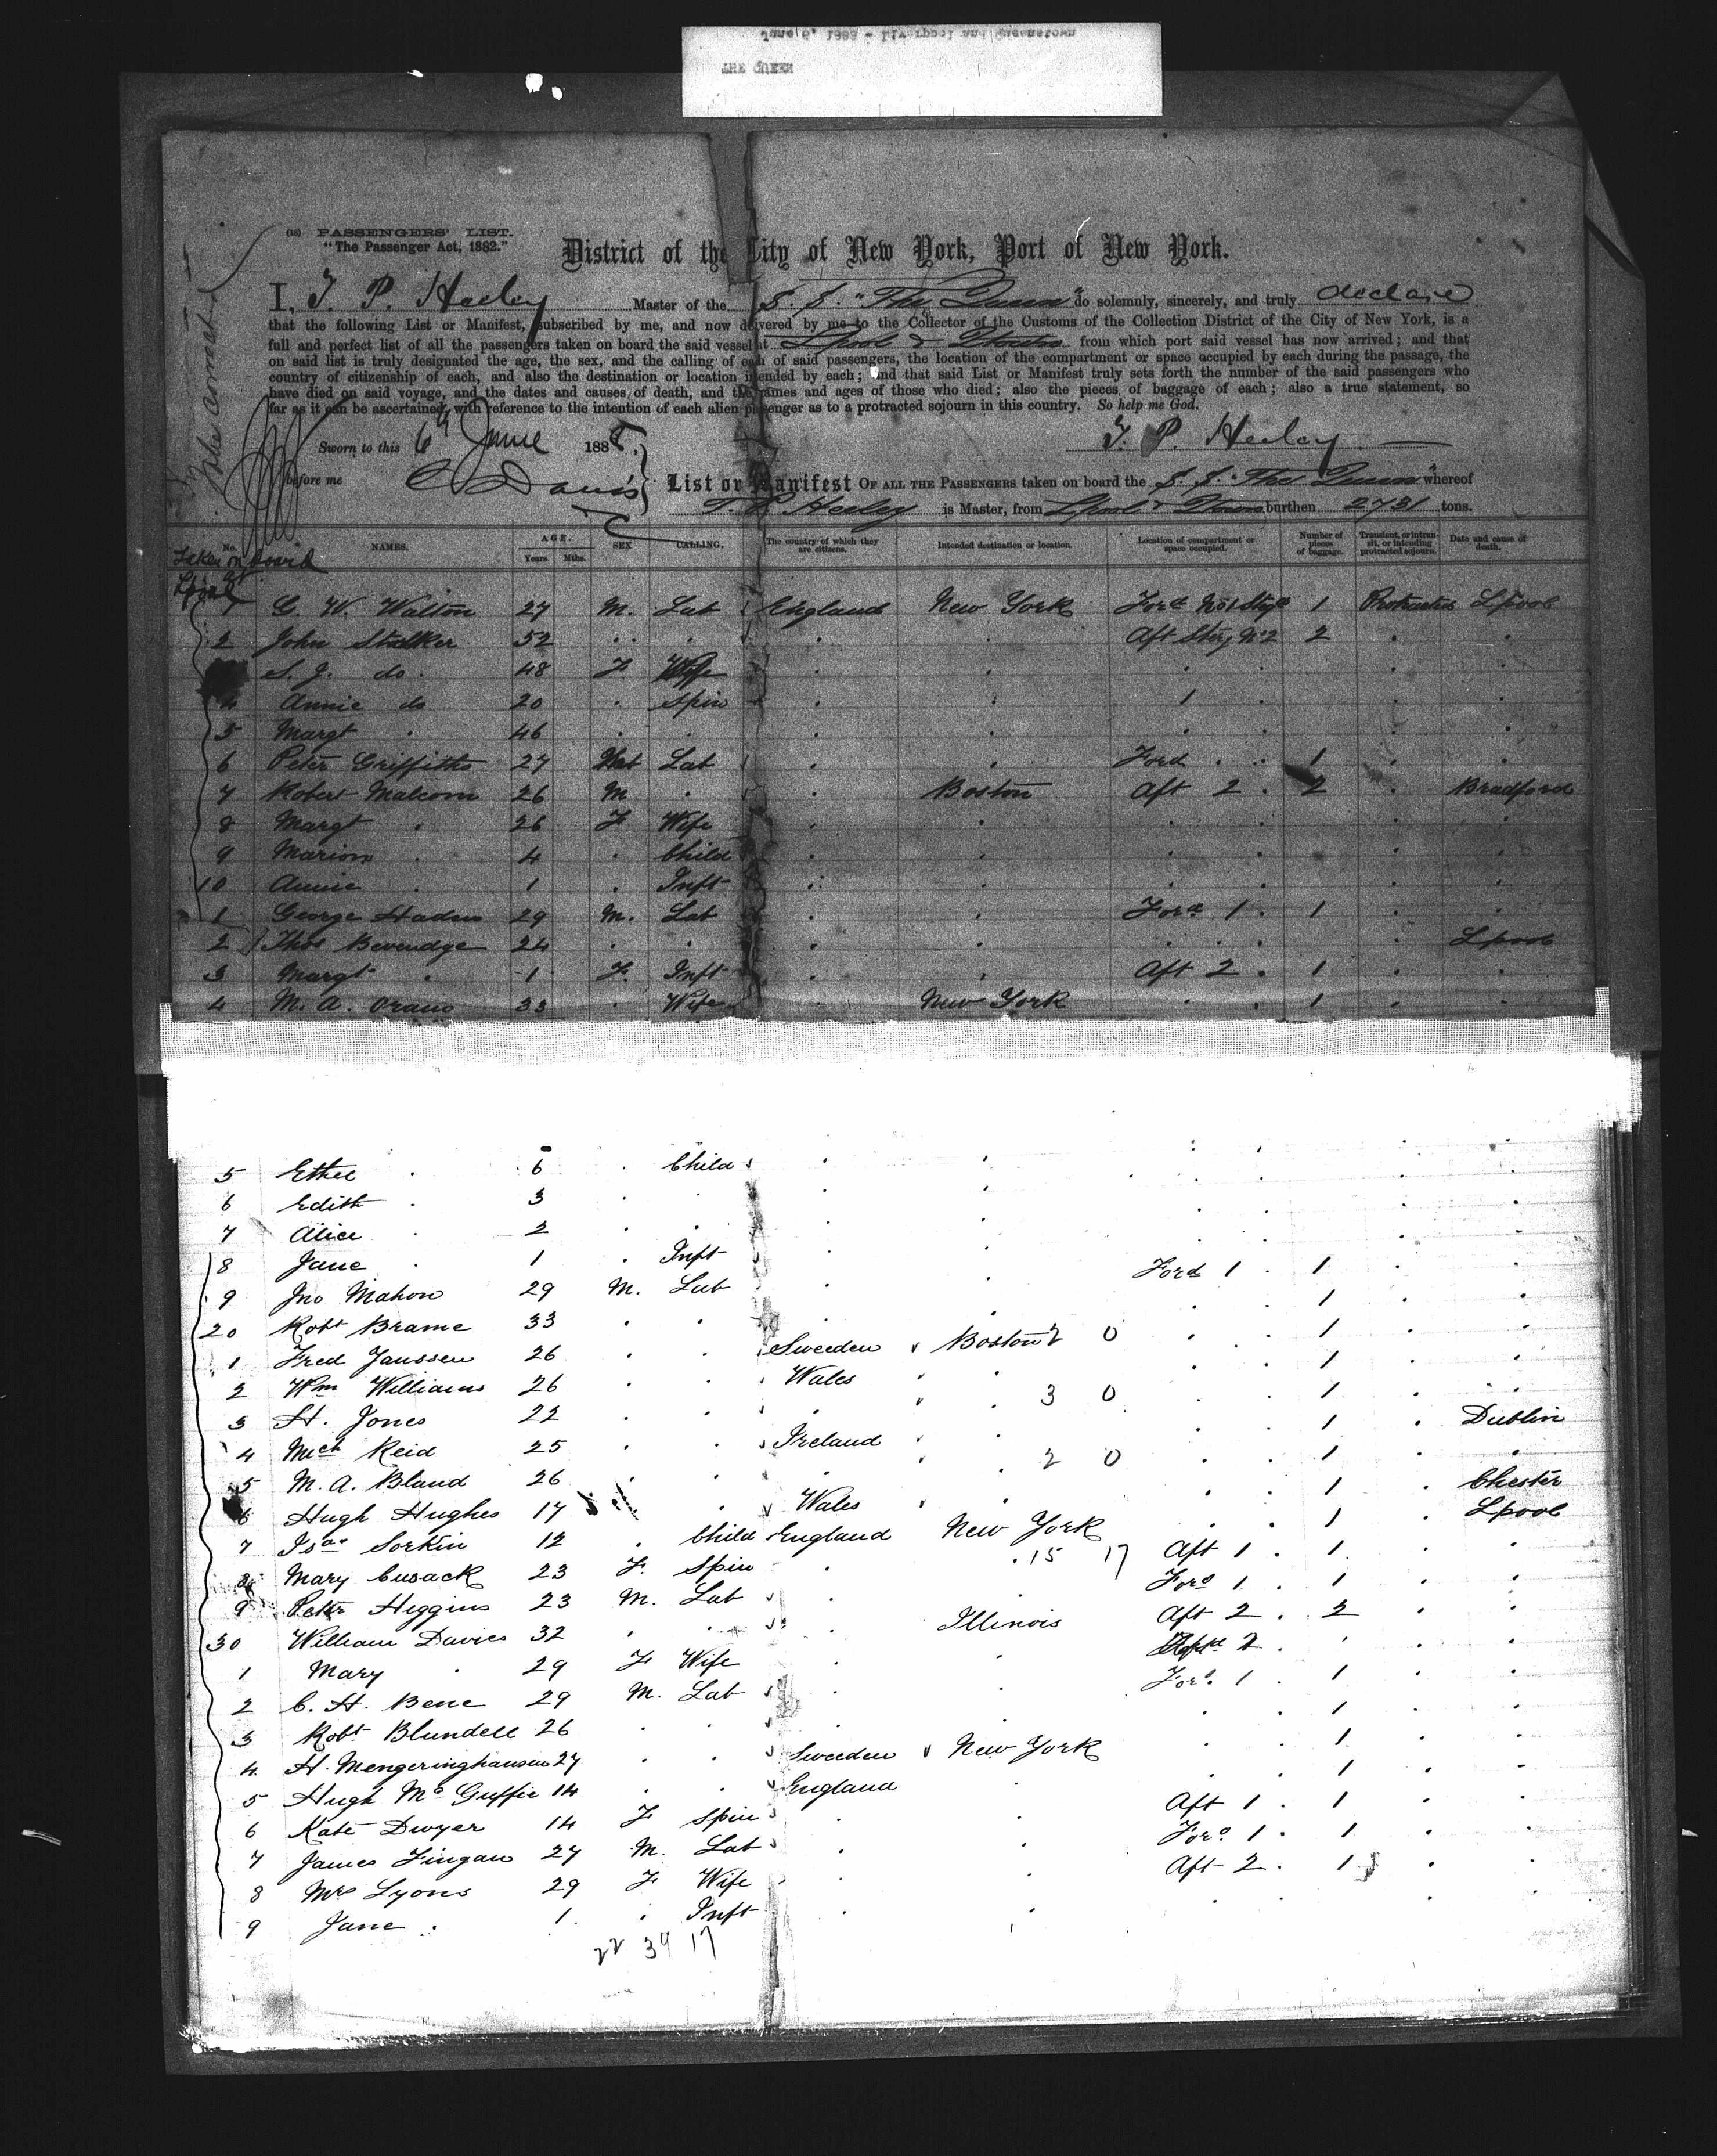 June 6, 1888 - Liverpool and Queenstown
THE QUEEN
(18) PASSENGERS' LIST.
"The Passenger Act, 1882."
District of the City of New York, Port of New York.
I, T. P. Heeley Master of the S. S. "The Queen" do solemnly, sincerely, and truly declare
that the following List or Manifest, subscribed by me, and now delivered by me to the Collector of the Customs of the Collection District of the City of New York, is a
full and perfect list of all the passengers taken on board the said vessel at Lpool & Qtown from which port said vessel has now arrived; and that
on said list is truly designated the age, the sex, and the calling of each of said passengers, the location of the compartment or space occupied by each during the passage, the
country of citizenship of each, and also the destination or location intended by each; and that said List or Manifest truly sets forth the number of the said passengers who
have died on said voyage, and the dates and causes of death, and the names and ages of those who died; also the pieces of baggage of each; also a true statement, so
far as it can be ascertained, with reference to the intention of each alien passenger as to a protracted sojourn in this country. So help me God.
Sworn to this 6th June 1888. T. P. Heeley
before me C Davis
List or Manifest OF ALL THE PASSENGERS taken on board the S. S. "The Queen" whereof
T. P. Heeley is Master, from Lpool & Qtown burthen 2731 tons.
No. NAMES. AGE. Years. Mths. SEX CALLING. The country of which they are citizens. Intended destination or location. Location of compartment or space occupied. Number of pieces of baggage. Transient, or in transit, or intending protracted sojourn. Date and cause of death.
Taken on board
at
Lpool
1 G. W. Walton 27 M. Lab England New York Ford No 1 Stge 1 Protracted Lpool
2 John Stalker 52 . . . . . Aft Stge No 2 2 . .
S. J. do. 48 F Wife . . . . .
4 Annie do 20 . Spin . . 1 . . .
5 Margt . 46 . . . . . . . .
6 Peter Griffiths 27 Lab . . Ford . . 1 . .
7 Robert Malcom 26 M . . Boston Aft 2 . 2 . Bradford
8 Margt . 26 F Wife . . . . . .
9 Marion . 4 . Child . . . . . .
10 Annie . 1 . Inft . . . . . .
1 George Haden 29 M. Lab . . Ford 1 . 1 . .
2 Thos Beveridge 24 . . . . . . . . Lpool
3 Margt . 1 F. Inft . . Aft 2 . 1 . .
4 M. A. Crane 33 . Wife . New York . . 1 . .
5 Ethel . 6 . Child . . . . . .
6 Edith . 3 . . . . . . . .
7 Alice . 2 . . . . . . . .
8 Jane . 1 . Inft . . . . . .
9 Jno Mahon 29 M. Lab . . Ford 1 . 1 . .
20 Robt Brame 33 . . . . . . 1 . .
1 Fred Janssen 26 . . Sweeden Boston 2 0 . . 1 . .
2 Wm Williams 26 . . Wales . . . 1 . .
3 H. Jones 22 . . . . 3 0 . . 1 . .
4 Mich Reid 25 . . Ireland . . . 1 . Dublin
5 M. A. Bland 26 . . . . 2 0 . . 1 . .
6 Hugh Hughes 17 . . Wales . . . 1 . Chester
7 Isac Sorkin 12 . Child England New York . . 1 . Lpool
8 Mary Cusack 23 F. Spin . . 15 17 Aft 1 . 1 . .
9 Peter Higgins 23 M. Lab . . Ford 1 . 1 . .
30 William Davies 32 . . . Illinois Aft 2 . 2 . .
1 Mary . 29 F Wife . . 2 . . . .
2 C. H. Bene 29 M. Lab . . Ford. 1 . 1 . .
3 Robt Blundell 26 . . . . . . 1 . .
4 H. Mengeringhausen 27 . . Sweeden New York . . 1 . .
5 Hugh Mc Guffie 14 . . England . . . 1 . .
6 Kate Dwyer 14 F Spin . . Aft 1 . 1 . .
7 James Fingan 27 M. Lab . . Ford. 1 . 1 . .
8 Mrs Lyons 29 F Wife . . Aft 2 . 1 . .
9 Jane . 1 . Inft . . . . . .
22 39 17